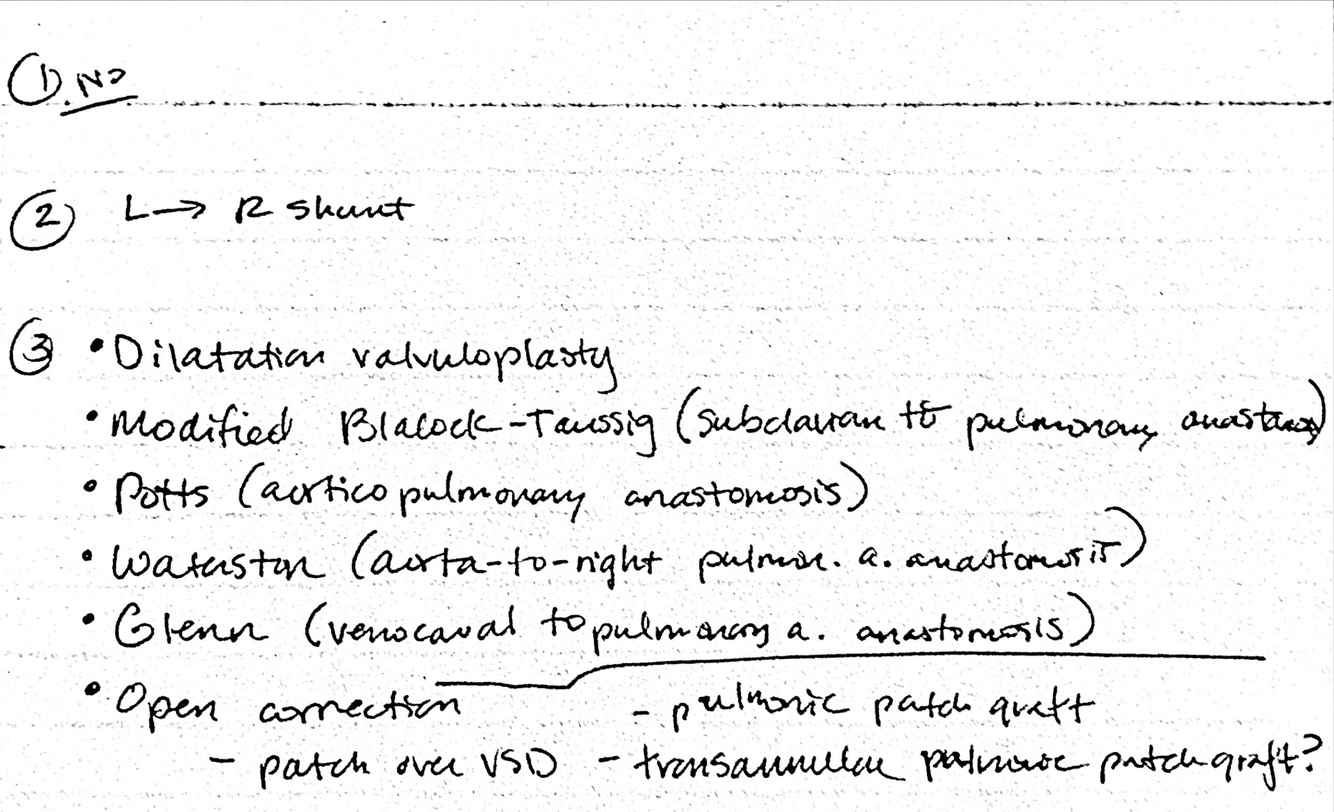 ① . No
② L → R shunt
③ • Dilatation valvuloplasty
• Modified Blalock-Taussig (subclavian to pulmonary anastomosis)
• Potts (aorticopulmonary anastomosis)
• Waterston (aorta-to-right pulmon. a. anastomosis)
• Glenn (venocaval to pulmonary a. anastomosis)
• Open correction - pulmonic patch graft
- patch over VSD - transannular pulmonic patch graft?